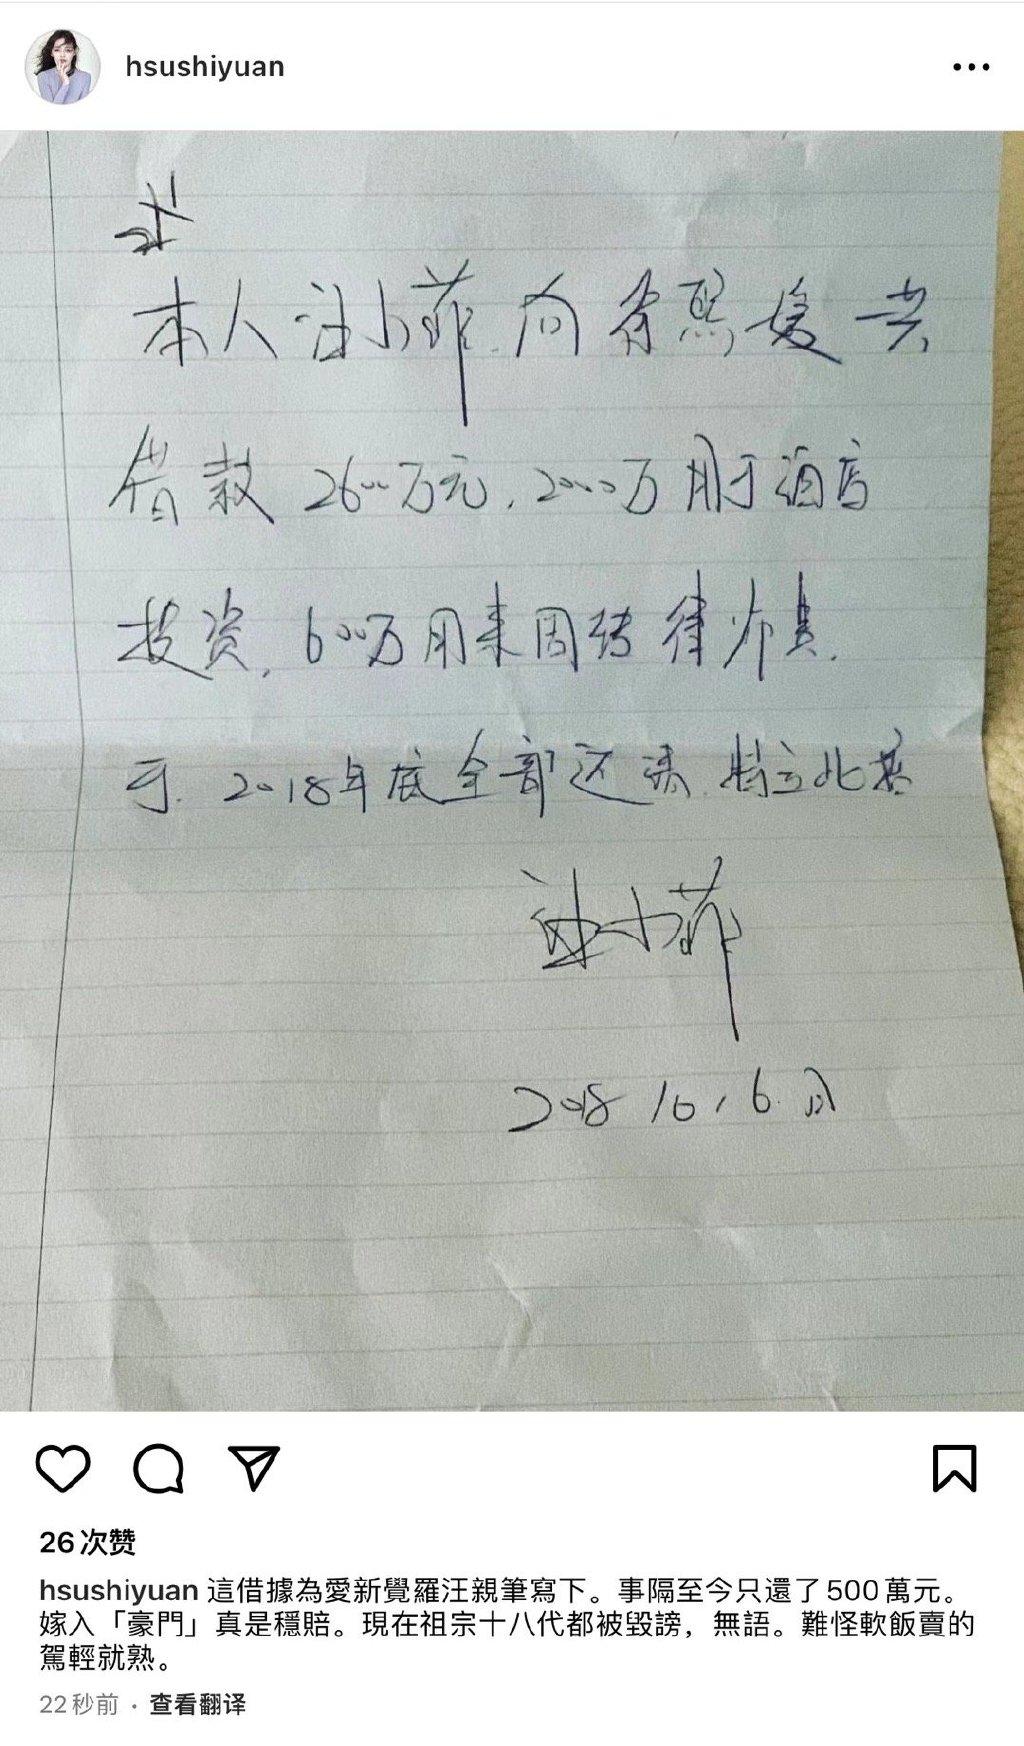 hsushiyuan
本人汪小菲向徐熙媛共
借款2600万元，2000万用于酒店
投资，600万用来周转律师费.
于.2018年底全部还清.特立此据
汪小菲
2018 10，6.
26次赞
hsushiyuan 這借據為愛新覺羅汪親筆寫下。事隔至今只還了500萬元。
嫁入「豪門」真是穩賠。現在祖宗十八代都被毀謗，無語。難怪軟飯賣的
駕輕就熟。
22秒前 · 查看翻译